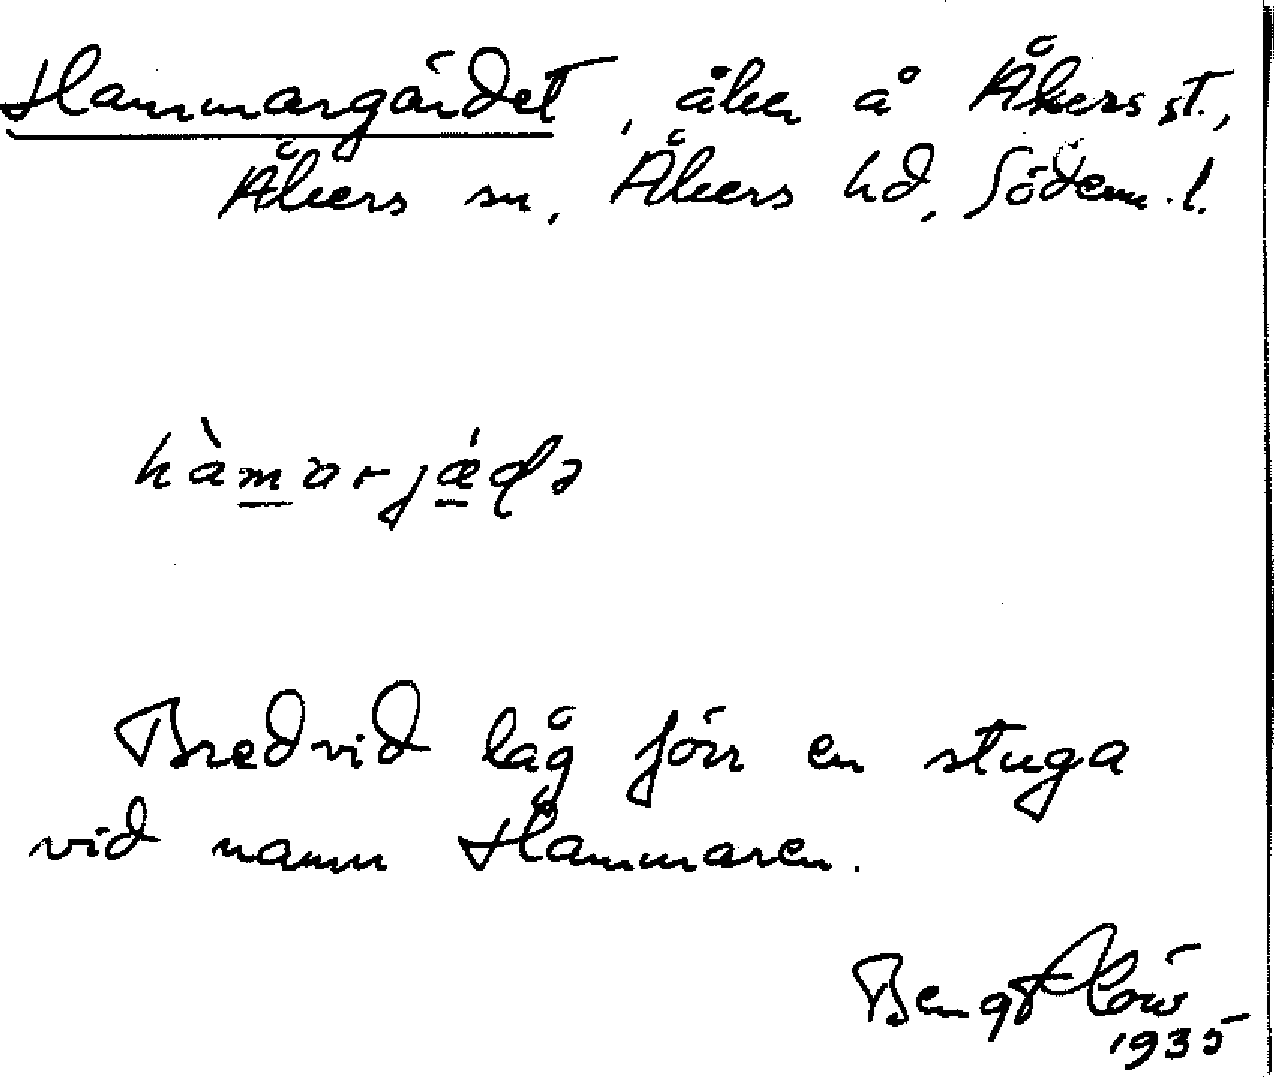 Hammargärdet, åker å Åkers st.,
Åkers sn, Åkers hd, Söderm. l.
hàmarjǽḍə
Bredvid låg förr en stuga
vid namn Hammaren.
Bengt
1935